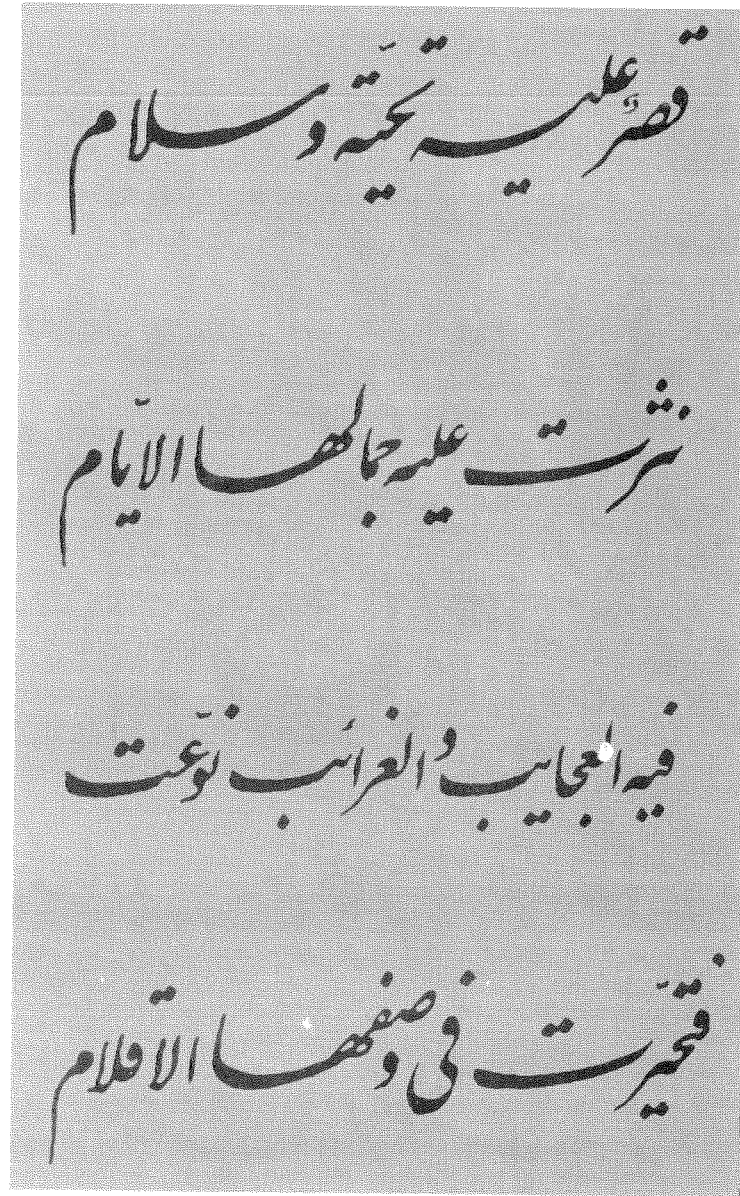 قصرٌ عليه تحيّة وسلام
نثرت عليه جمالها الايّام
فيه العجايب والغرائب نوّعت
فتحيّرت في وصفها الاقلام